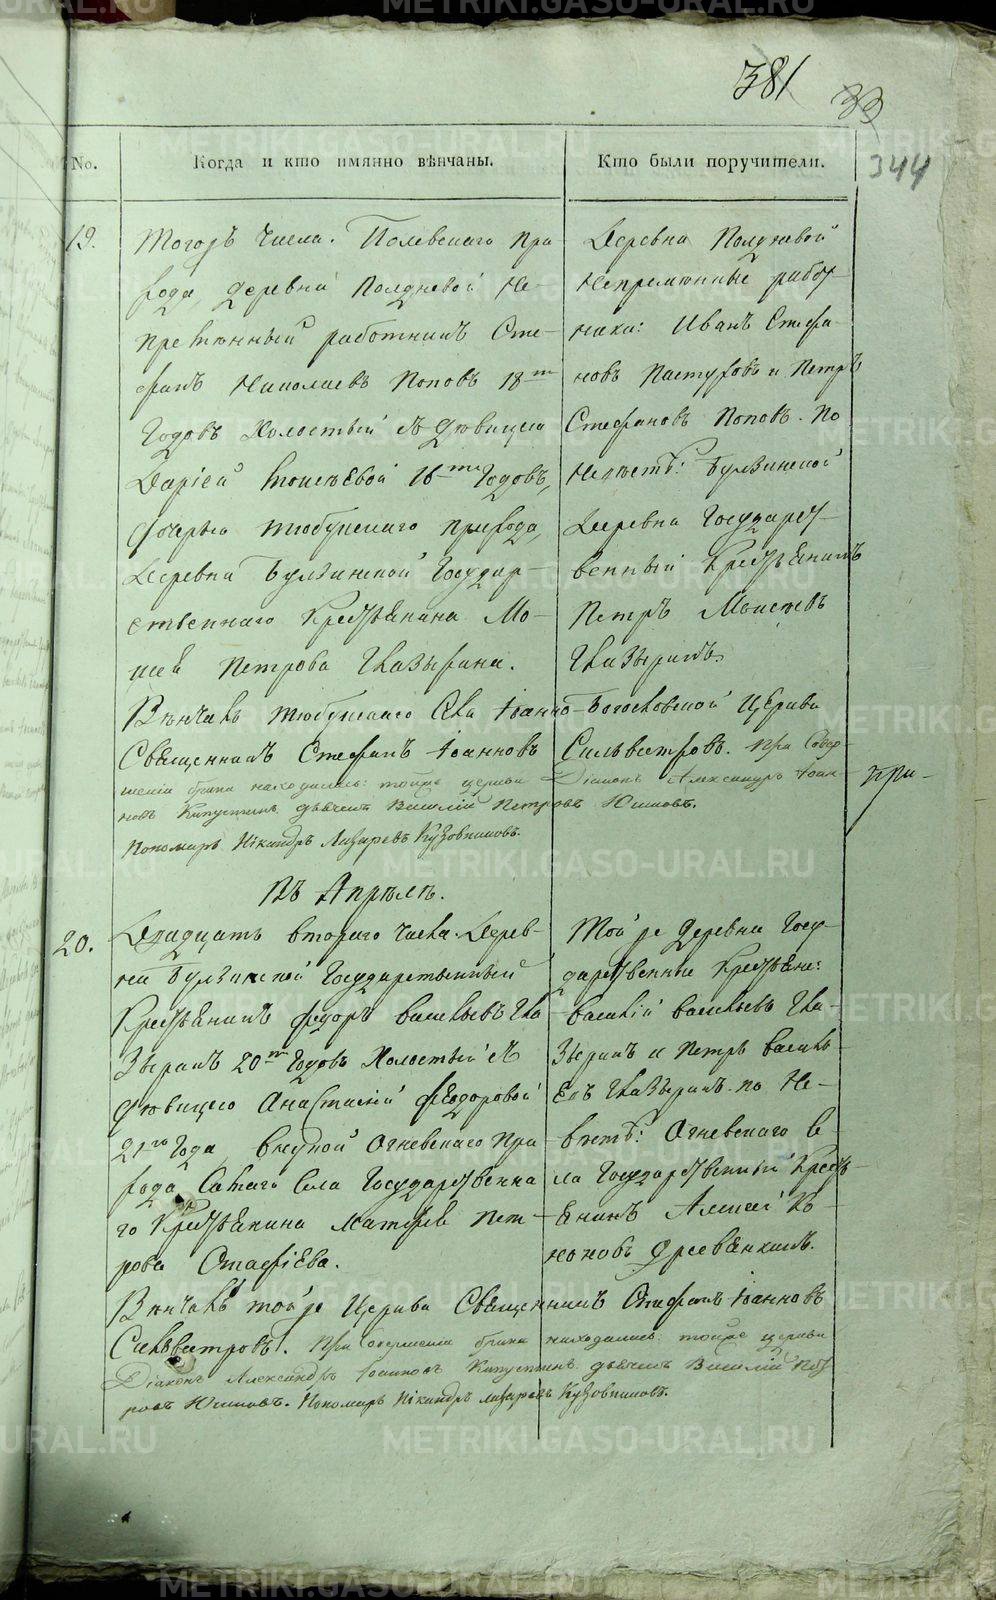 381
33
344
No.
Когда и кто имянно вѣнчаны.
Кто были поручители.
19.
Тогожъ числа. Полевскаго При-
хода, деревни Полдневой Не-
премѣнный работникъ Сте-
фанъ Николаевъ Поповъ 18ти
Годовъ Холостый съ дѣвицею
Дарьей Моисѣевой 16ти Годовъ,
дочерью Тюбукскаго прихода,
Деревни Булзинской Государ-
ственнаго Крестьянина Мо-
исея Петрова Глазырина.
Деревни Полдневой
Непремѣнные работ-
ники: Иванъ Стефа-
новъ Пастуховъ и Петръ
Стефановъ Поповъ. По
Невѣстѣ: Булзинской
Деревни Государст-
венный Крестьянинъ
Петръ Моисеевъ
Глазыринъ.
Вѣнчалъ Тюбукскаго Села Іоанно-Богословской Церкви
Священникъ Стефанъ Іоанновъ Сильвестровъ. При Совер-
шеніи брака находились: тойже церкви Діаконъ Александръ Іоан-
новъ Капустинъ, дьячекъ Василій Петровъ Юшковъ.
Пономарь Никандръ Лазаревъ Кузовниковъ.
при-
Въ Апрѣлѣ.
20.
Двадцать втораго числа. Дерев-
ни Булзинской Государственный
Крестьянинъ Федоръ Васильевъ Гла
зыринъ 20ти Годовъ Холостый съ
дѣвицею Анастасіей Феодоровой
21го Года, внукой Огневскаго При
хода Самаго Села Государственна
го Крестьянина Матфея Пет-
рова Стафѣева.
Той же Деревни Госу-
дарственные Крестьяне:
Василій Васильевъ Гла-
зыринъ и Петръ Василь-
евъ Глазыринъ. по Не-
вѣстѣ: Огневскаго Се
ла Государственный Кресть-
янинъ Алексей Ко-
ноновъ
Вѣнчалъ той же Церкви Священникъ Стефанъ Іоанновъ
Сильвестровъ. При совершеніи брака находились: тойже церкви
Діаконъ Александръ Іоанновъ Капустинъ. дьячекъ Василій Пет
ровъ Юшковъ. Пономарь Никандръ Лазаревъ Кузовниковъ.
METRIKI.GASO-URAL.RU